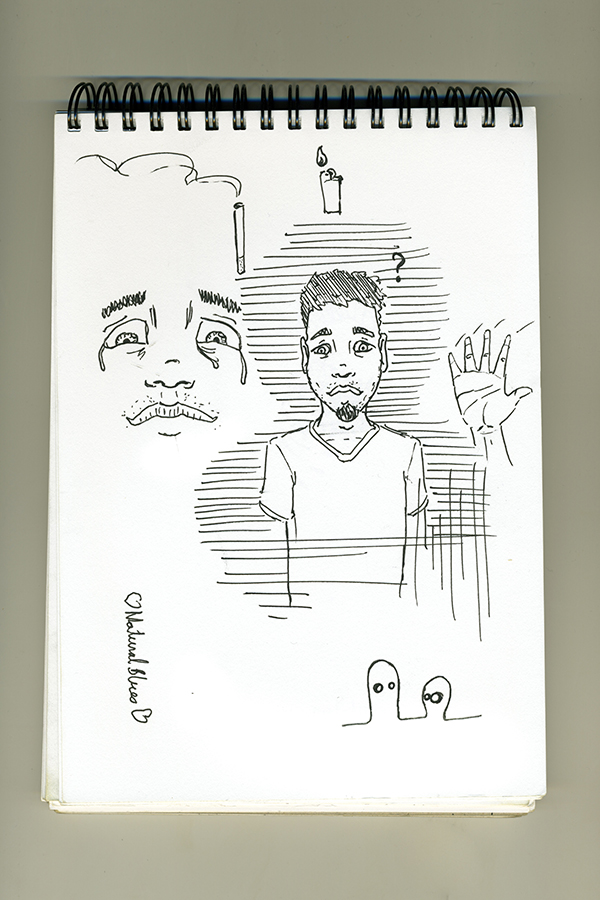 ?
♡ Natural Blues ♡